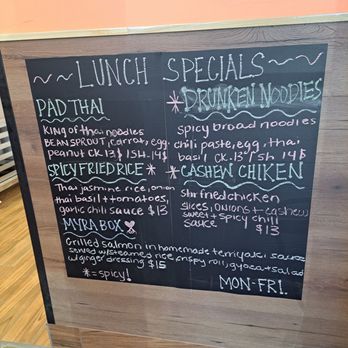 ~~ LUNCH SPECIALS ~~
PAD THAI
King of thai noodles
BEAN SPROUT, carrot, egg,
peanut CK. 13$ / SH. 14$
SPICY FRIED RICE *
Thai jasmine rice, onion
thai basil + tomatoes,
garlic chili sauce $13
MYRA BOX
Grilled salmon in homemade terriyaki sauce
served w/ steamed rice, crispy roll, gyoza + salad
w/ ginger dressing $15
* = spicy!
* DRUNKEN NOODLES
spicy broad noodles
chili paste, egg, thai
basil CK. 13$ / SH 14$
* CASHEW CHIKEN
stir fried chicken
slices, onions + cashew
sweet + spicy chili
sauce $13
MON-FRI.